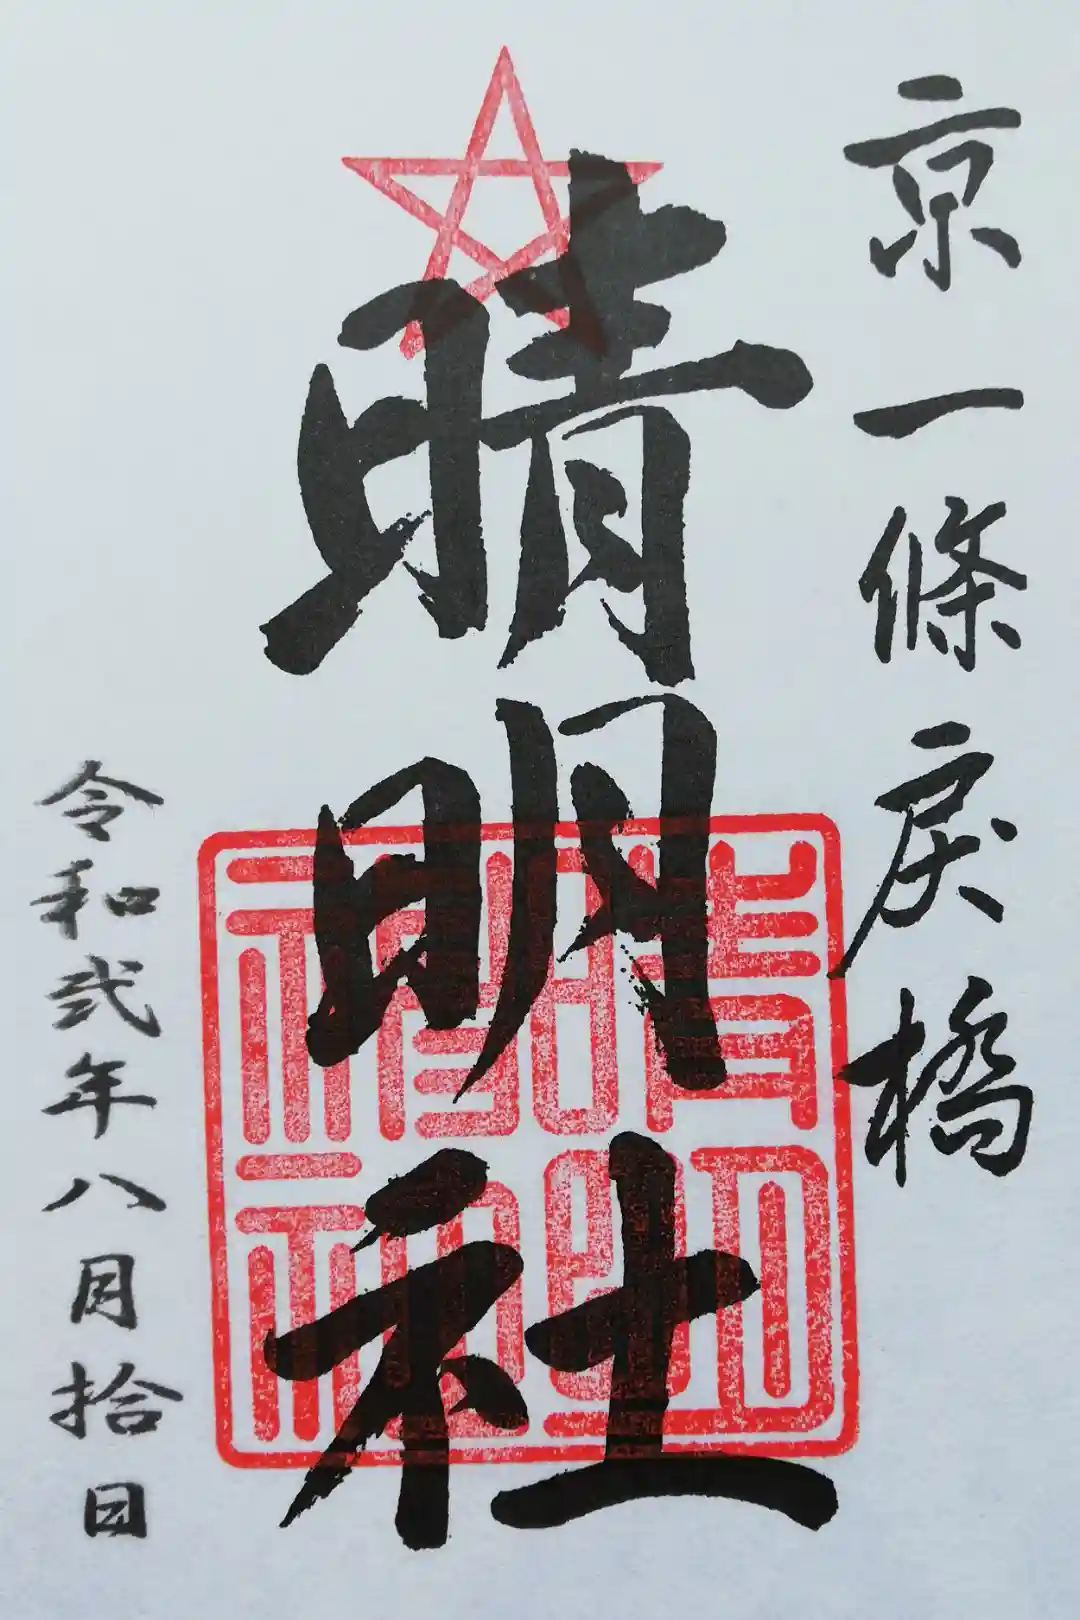 京一條戻橋
晴明社
晴明神社
令和弐年八月拾日